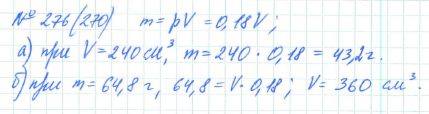 № 276(270) m = ρV = 0,18V;
а) при V = 240 см³, m = 240 · 0,18 = 43,2 г.
б) при m = 64,8 г, 64,8 = V · 0,18; V = 360 см³.